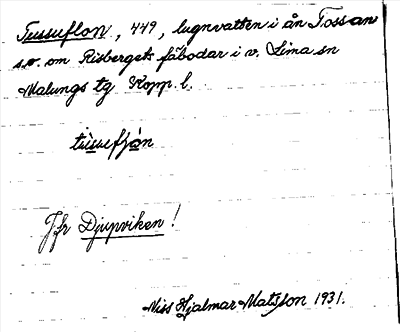 Tussuflon, 449, lugnvatten i ån Tossan
s.o. om Risbergets fäbodar i v. Lima sn
Malungs tg Kopp. l.
Jfr Djupviken!
Nils Hjalmar Matsson 1931.